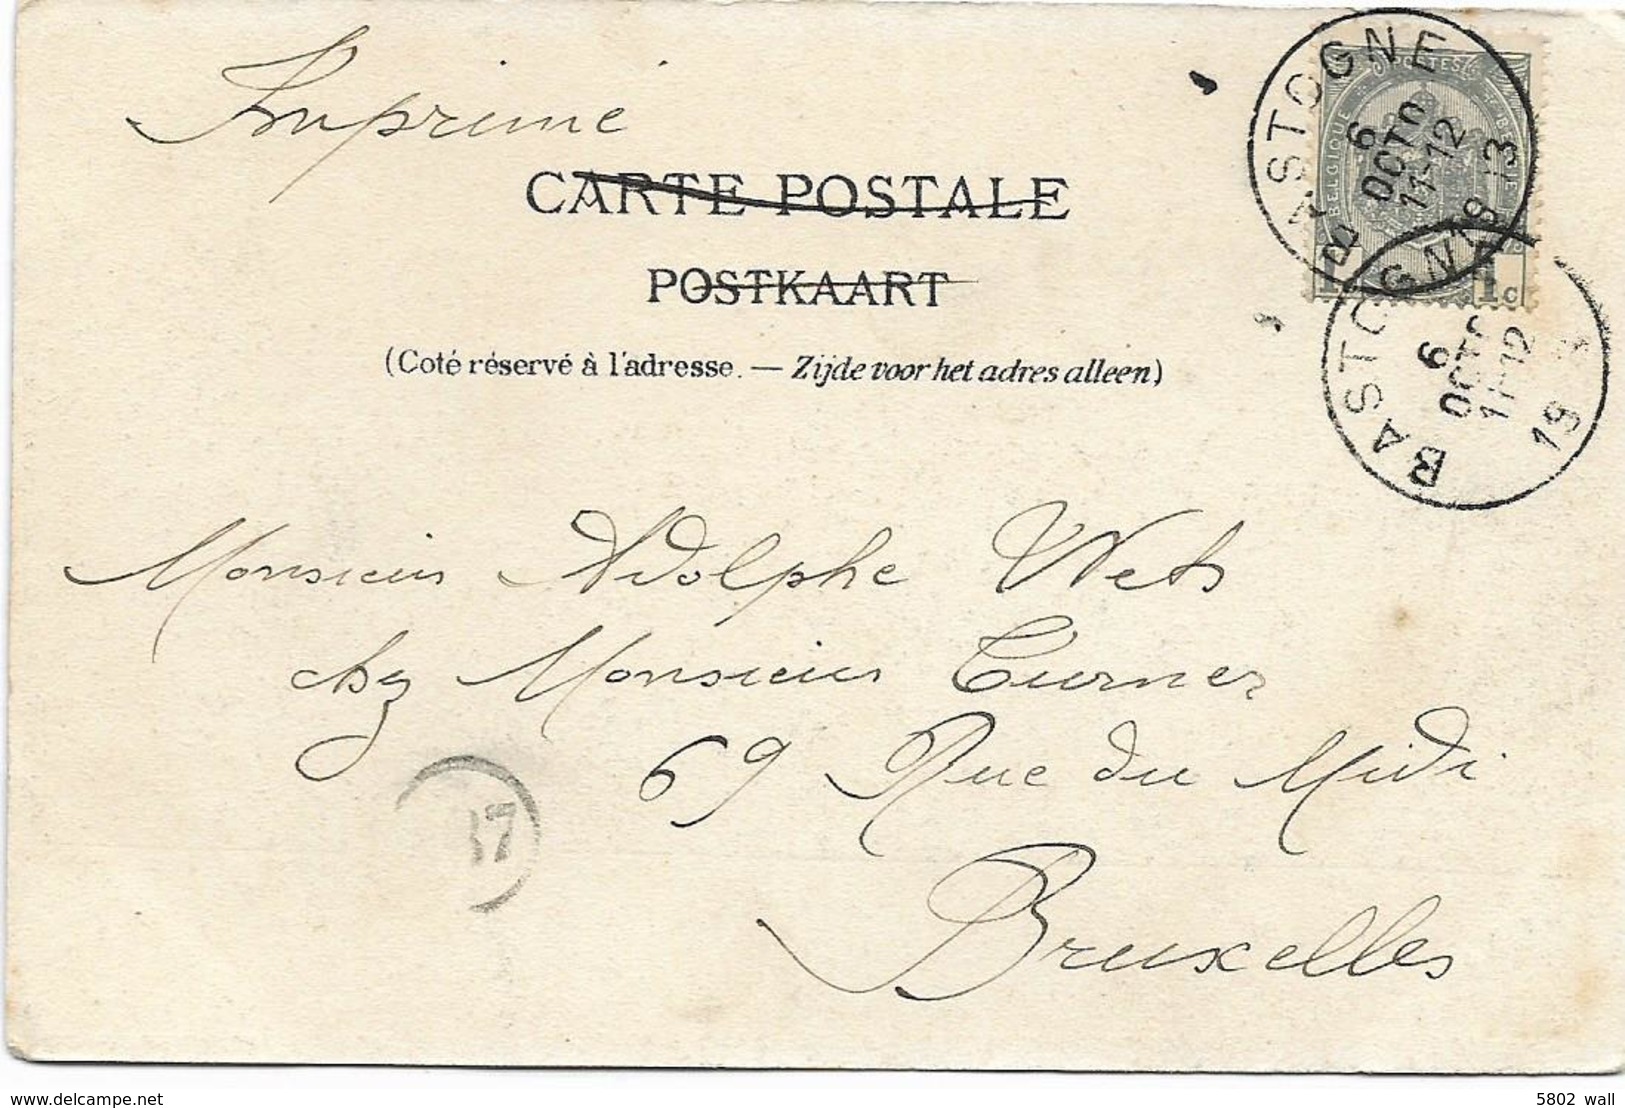 Imprimé
CARTE POSTALE
POSTKAART
(Coté réservé à l'adresse. — Zijde voor het adres alleen)
POSTES
BELGIQUE BELGIE
1 1c
BASTOGNE
6
OCTO
11-12
1913
BASTOGNE
6
OCTO
11-12
19 3
Monsieur Adolphe Wets
chez Monsieur Turner
69 Rue du Midi
Bruxelles
37
5802 wall